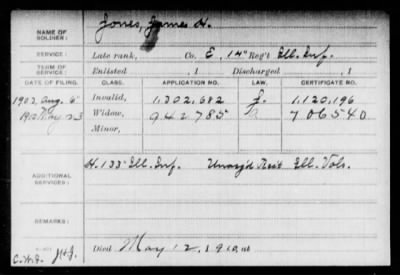 NAME OF SOLDIER: Jones, James H.
SERVICE: Late rank, Co. E, 14" Reg't Ill. Inf.
TERM OF SERVICE: Enlisted , 1 Discharged , 1
DATE OF FILING. CLASS. APPLICATION NO. LAW. CERTIFICATE NO.
1903, Aug. 6 Invalid, 1,302,612 1,120,196
May 23 Widow, 942,785 706540
Minor,
ADDITIONAL SERVICES: H. 133" Ill. Inf. Unas'd Ill. Vols.
REMARKS:
Died May 12, 1910, at